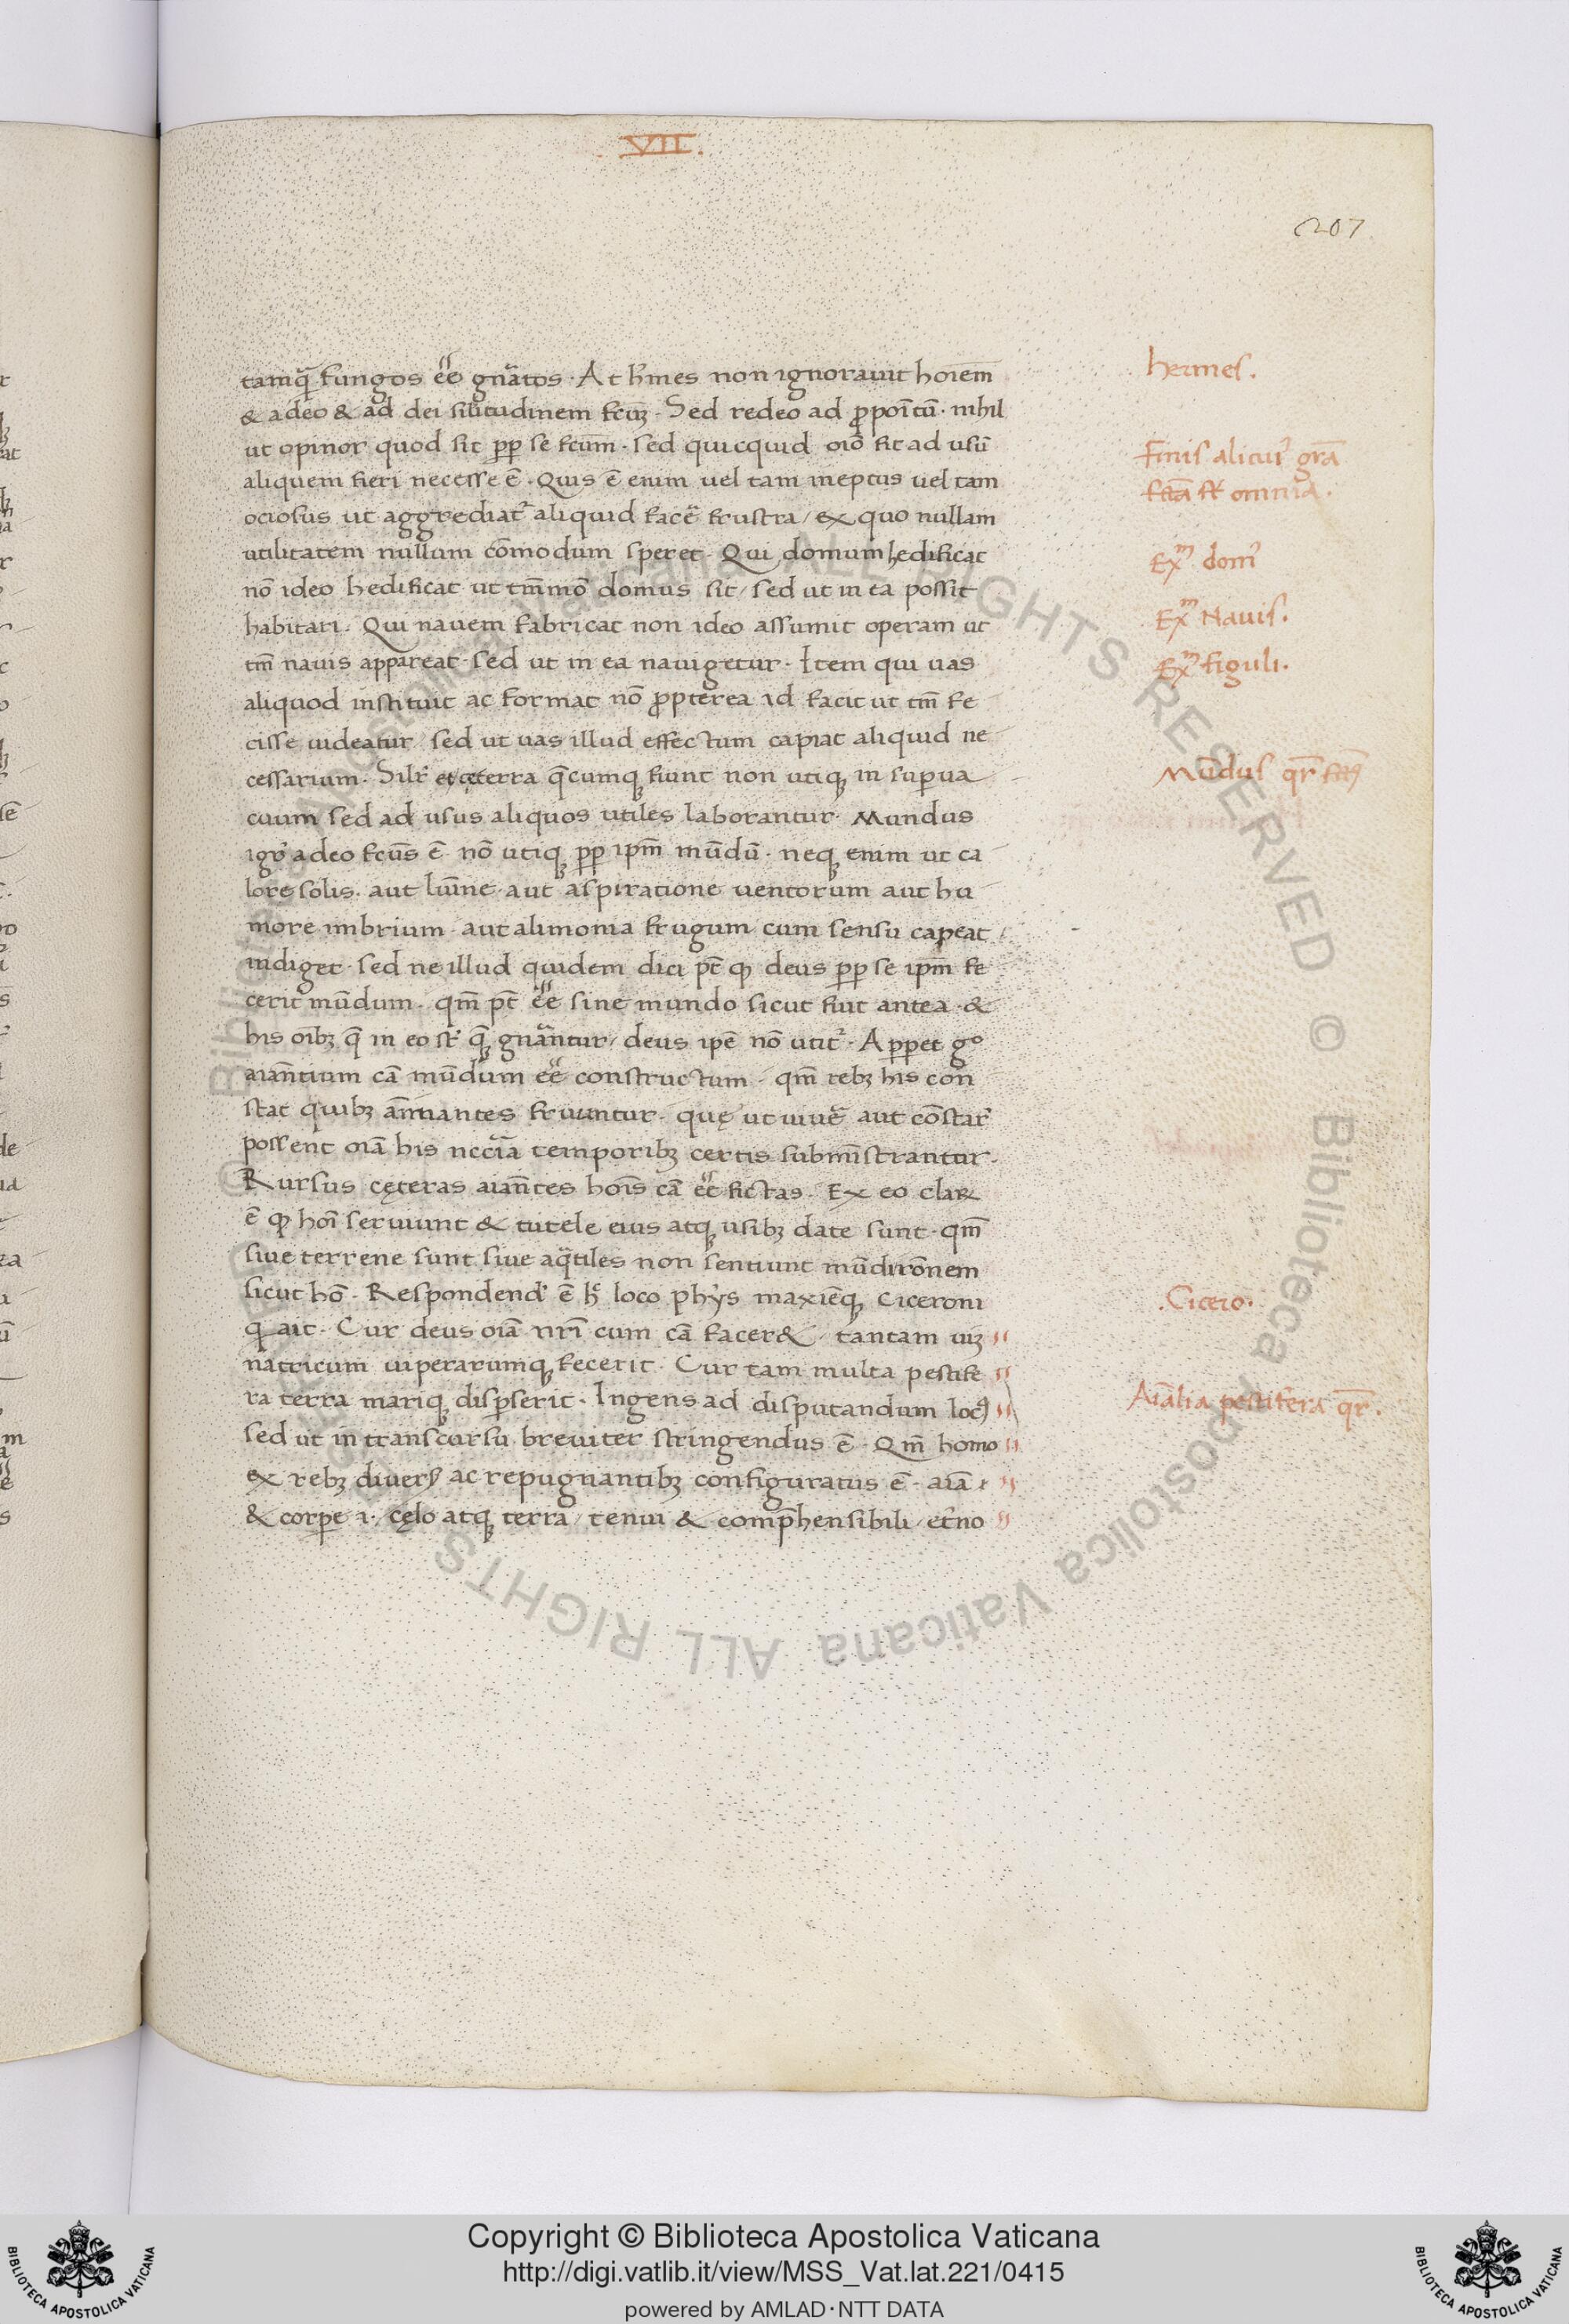 .VII.
207
tamq̃ fungos eẽ gnãtos. At hr̃mes non ignorauit hoiem̃
& a deo & ad dei silitudinem fcũꝫ. Sed redeo ad ꝓpoitũ. nihil
ut opinor quod sit ꝓp se fcum̃. sed quicquid oiõ fit ad usũ
aliquem fieri necesse ẽ. Quis ẽ enim uel tam ineptus uel tam
ociosus ut aggrediat᷑ aliquid facẽ frustra / ex quo nullam
utilitatem nullum cõmodum speret. Qui domum hedificat
nõ ideo hedificat ut tm̃mõ domus sit / sed ut in ea possit
habitari. Qui nauem fabricat non ideo assumit operam ut
tm̃ nauis appareat. sed ut in ea nauigetur. Item qui uas
aliquod instituit ac format nõ ꝓpterea id facit ut tm̃ fe
cisse uideatur / sed ut uas illud effectum capiat aliquid ne
cessarium. Silr̃ et cęterra q̃cumqꝫ fiunt non utiqꝫ in suꝑua
cuum sed ad usus aliquos utiles laborantur. Mundus
igr̃ a deo fcus̃ ẽ nõ utiqꝫ ꝓp ipm̃ mũdũ. neqꝫ enim ut ca
lore solis. aut lumĩe. aut aspiratione uentorum aut hu
more imbrium. aut alimonia frugum cum sensu capeat /
indiget. sed ne illud quidem dici pt̃ ꝙ deus ꝓp se ipm̃ fe
cerit mũdum. qm̃ pt̃ eẽ sine mundo sicut fuit antea. &
his oĩbꝫ q̃ in eo st̃ q̃qꝫ gnãntur / deus ipẽ nõ utit᷑. Apꝑet gº
aiañtium cã mũdum eẽ constructum. qm̃ rebꝫ his con
stat quibꝫ añimantes fruuntur. quę ut uiuẽ aut cõstar̃
possent oiã his nccĩa temporibꝫ certis submĩstrantur.
Rursus cęteras aiañtes hoĩs cã eẽ fictas. Ex eo claꝝ
ẽ ꝙ hoĩ seruiunt & tutele eius atqꝫ usibꝫ date sunt. qm̃
siue terrene sunt siue aq̃tiles non sentiunt mũdi rõnem
sicut hõ. Respondend᷑ ẽ hͨ loco phỹs maxiẽqꝫ Ciceroni
q̃ ait. Cur deus oiã nr̃i cum cã facer& / tantam uiꝫ
natricum uiperarumqꝫ fecerit. Cur tam multa pestife
ra terra mariqꝫ disꝑserit. Ingens ad disputandum locꝰ
sed ut in transcursu breuiter stringendus ẽ. Qm̃ homo
ex rebꝫ diuers̃ ac repugnantibꝫ configuratus ẽ. aiã
& corꝑe .i. cęlo atqꝫ terra / tenui & comp̃hensibili / et̃no
hermes.
Finis alicui᷑ grã
fctã st̃ omnia.
Exᵐ domꝰ
Exᵐ Nauis.
Exᵐ figuli.
Mũdus qr̃ fctꝰ
.Cicero.
Aiãlia pestifera qr̃.
Copyright © Biblioteca Apostolica Vaticana
http://digi.vatlib.it/view/MSS_Vat.lat.221/0415
powered by AMLAD·NTT DATA
BIBLIOTECA APOSTOLICA VATICANA
BIBLIOTECA APOSTOLICA VATICANA
© Biblioteca Apostolica Vaticana ALL RIGHTS RESERVED © Biblioteca Apostolica Vaticana ALL RIGHTS RESERVED